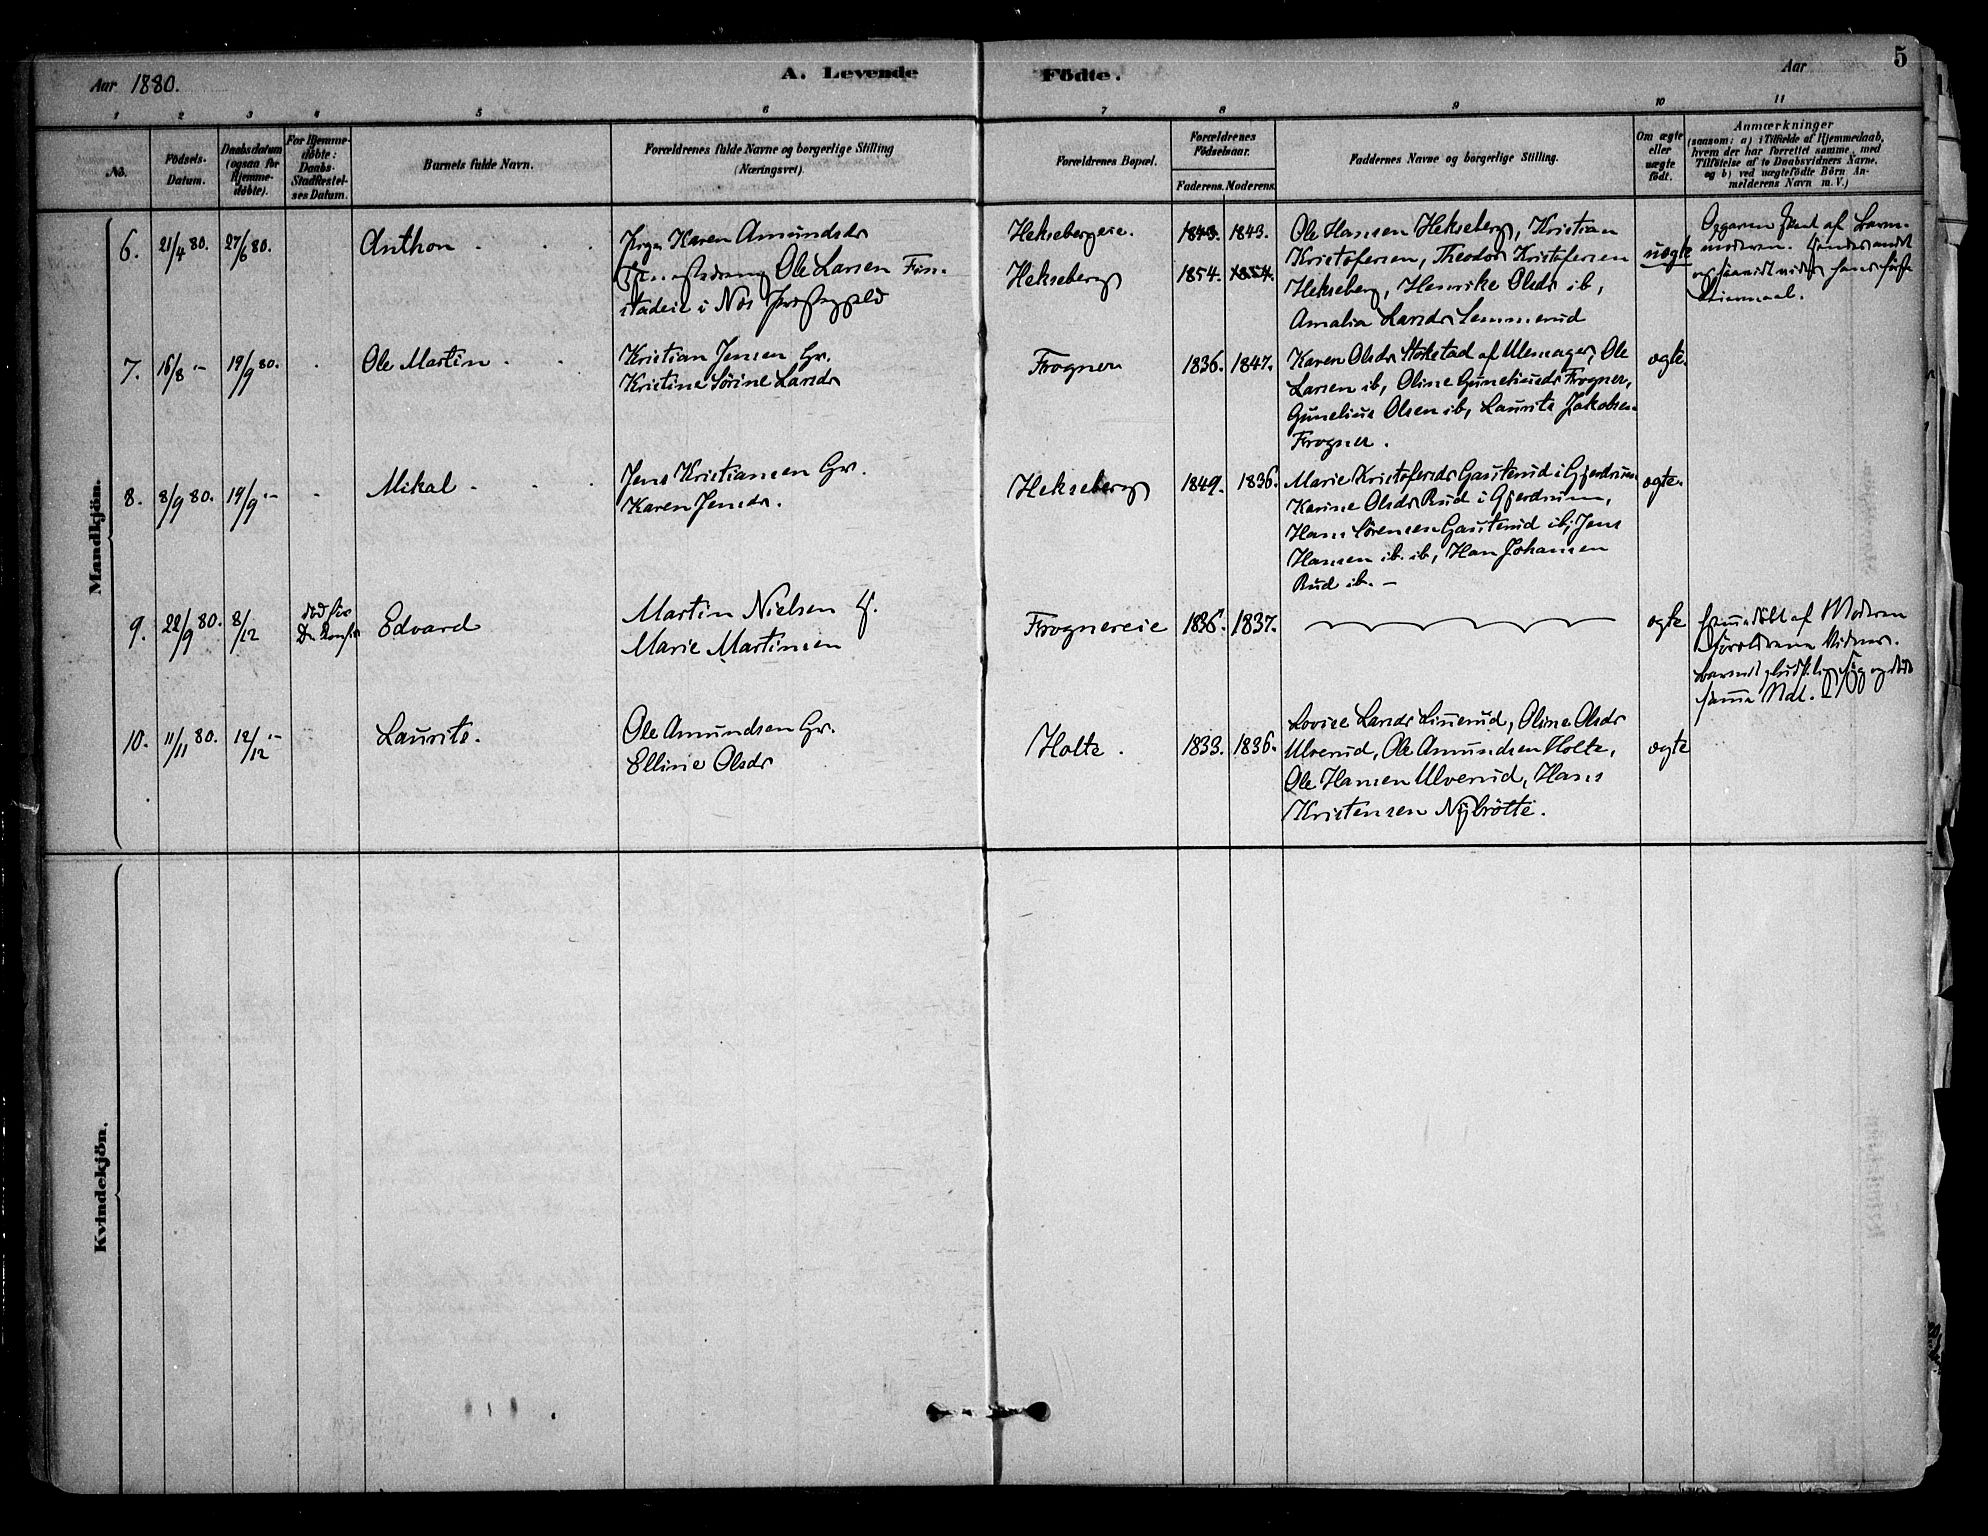 Aar 1880.
A. Levende
Födte.
Aar
5
1 2 3 4 5 6 7 8 9 10 11
No.
Födsels-
Datum.
Daabsdatum
(ogsaa for
Hjemme-
döbte).
For Hjemme-
döbte:
Daabs-
Stadfæstel-
ses Datum.
Barnets fulde Navn.
Forældrenes fulde Navne og borgerlige Stilling
(Næringsvei)
Forældrenes Bopæl.
Forældrenes
Födselsaar.
Faderens. Moderens.
Faddernes Navne og borgerlige Stilling.
Om ægte
eller
uægte
födt.
Anmærkninger
(saasom: a) i Tilfælde af Hjemmedaab,
hvem der har forrettet samme, med
Tilföielse af to Daabsvidners Navne.
og b) ved uægtefödte Börn An-
melderens Navn m. V.)
Mandkjön.
6. 21/4 80. 27/6 80.
Anthon
Karen Amundsdr
Ole Larsen Fin-
stadeie i Nes
Heksebergeie.
Hekseberg
1843. 1843.
1854. 1854.
Ole Hansen Hekseberg, Kristian
Kristofersen, Theodor Kristofersen
Hekseberg, Henrike Olsdr ib,
Amalia Larsdr Lemmerud
uægte
af Barn-
moderen.
7. 16/8 - 19/9 80.
Ole Martin
Kristian Jensen Gr.
Kristine Sörine Larsdr
Frogner
1836. 1847.
Karen Olsdr Stokstad af Ulensager, Ole
Larsen ib, Oline Guneliusdr Frogner,
Gunelius Olsen ib, Laurits Jakobsen
Frogner.
ægte.
8. 8/9 80. 19/9 -
Mikal
Jens Kristiansen Gr.
Karen Jensdr.
Hekseberg
1849. 1836.
Marie Kristofersdr Gauterud i Gjerdrum
Karine Olsdr Rud i Gjerdrum,
Hans Sörensen Gauterud ib, Jens
Hansen ib. ib, Han Johansen
Rud ib. -
ægte.
9. 22/9 80. 8/12
död för
Edvard
Martin Nielsen
Marie Martinsen
Frognereie
1836. 1837.
ægte
af Moderen
Forældrene Vidner.
samme Nat.
10. 11/11 80. 12/12 -
Laurits.
Ole Amundsen Gr.
Ellinie Olsdr
Holte.
1833. 1836.
Lovise Larsdr Linerud, Oline Olsdr
Ulverud, Ole Amundsen Holte,
Ole Hansen Ulverud, Hans
Kristensen Nybrötte.
ægte
Kvindekjön.